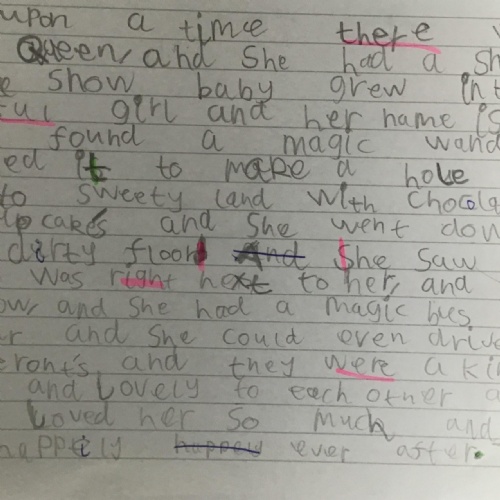 upon a time there
Queen, and She had a Sh
e Show baby grew int
ful girl and her name is
found a magic wand
ed it to make a hole
to Sweety land with Chocola
up cakes and She went dow
dirty floor And She saw
was right next to her, and
ow, and she had a magic bus
r and She could even drive
eront's and they were a kin
and Lovely to each other a
Loved her so much and
happily happey ever after.